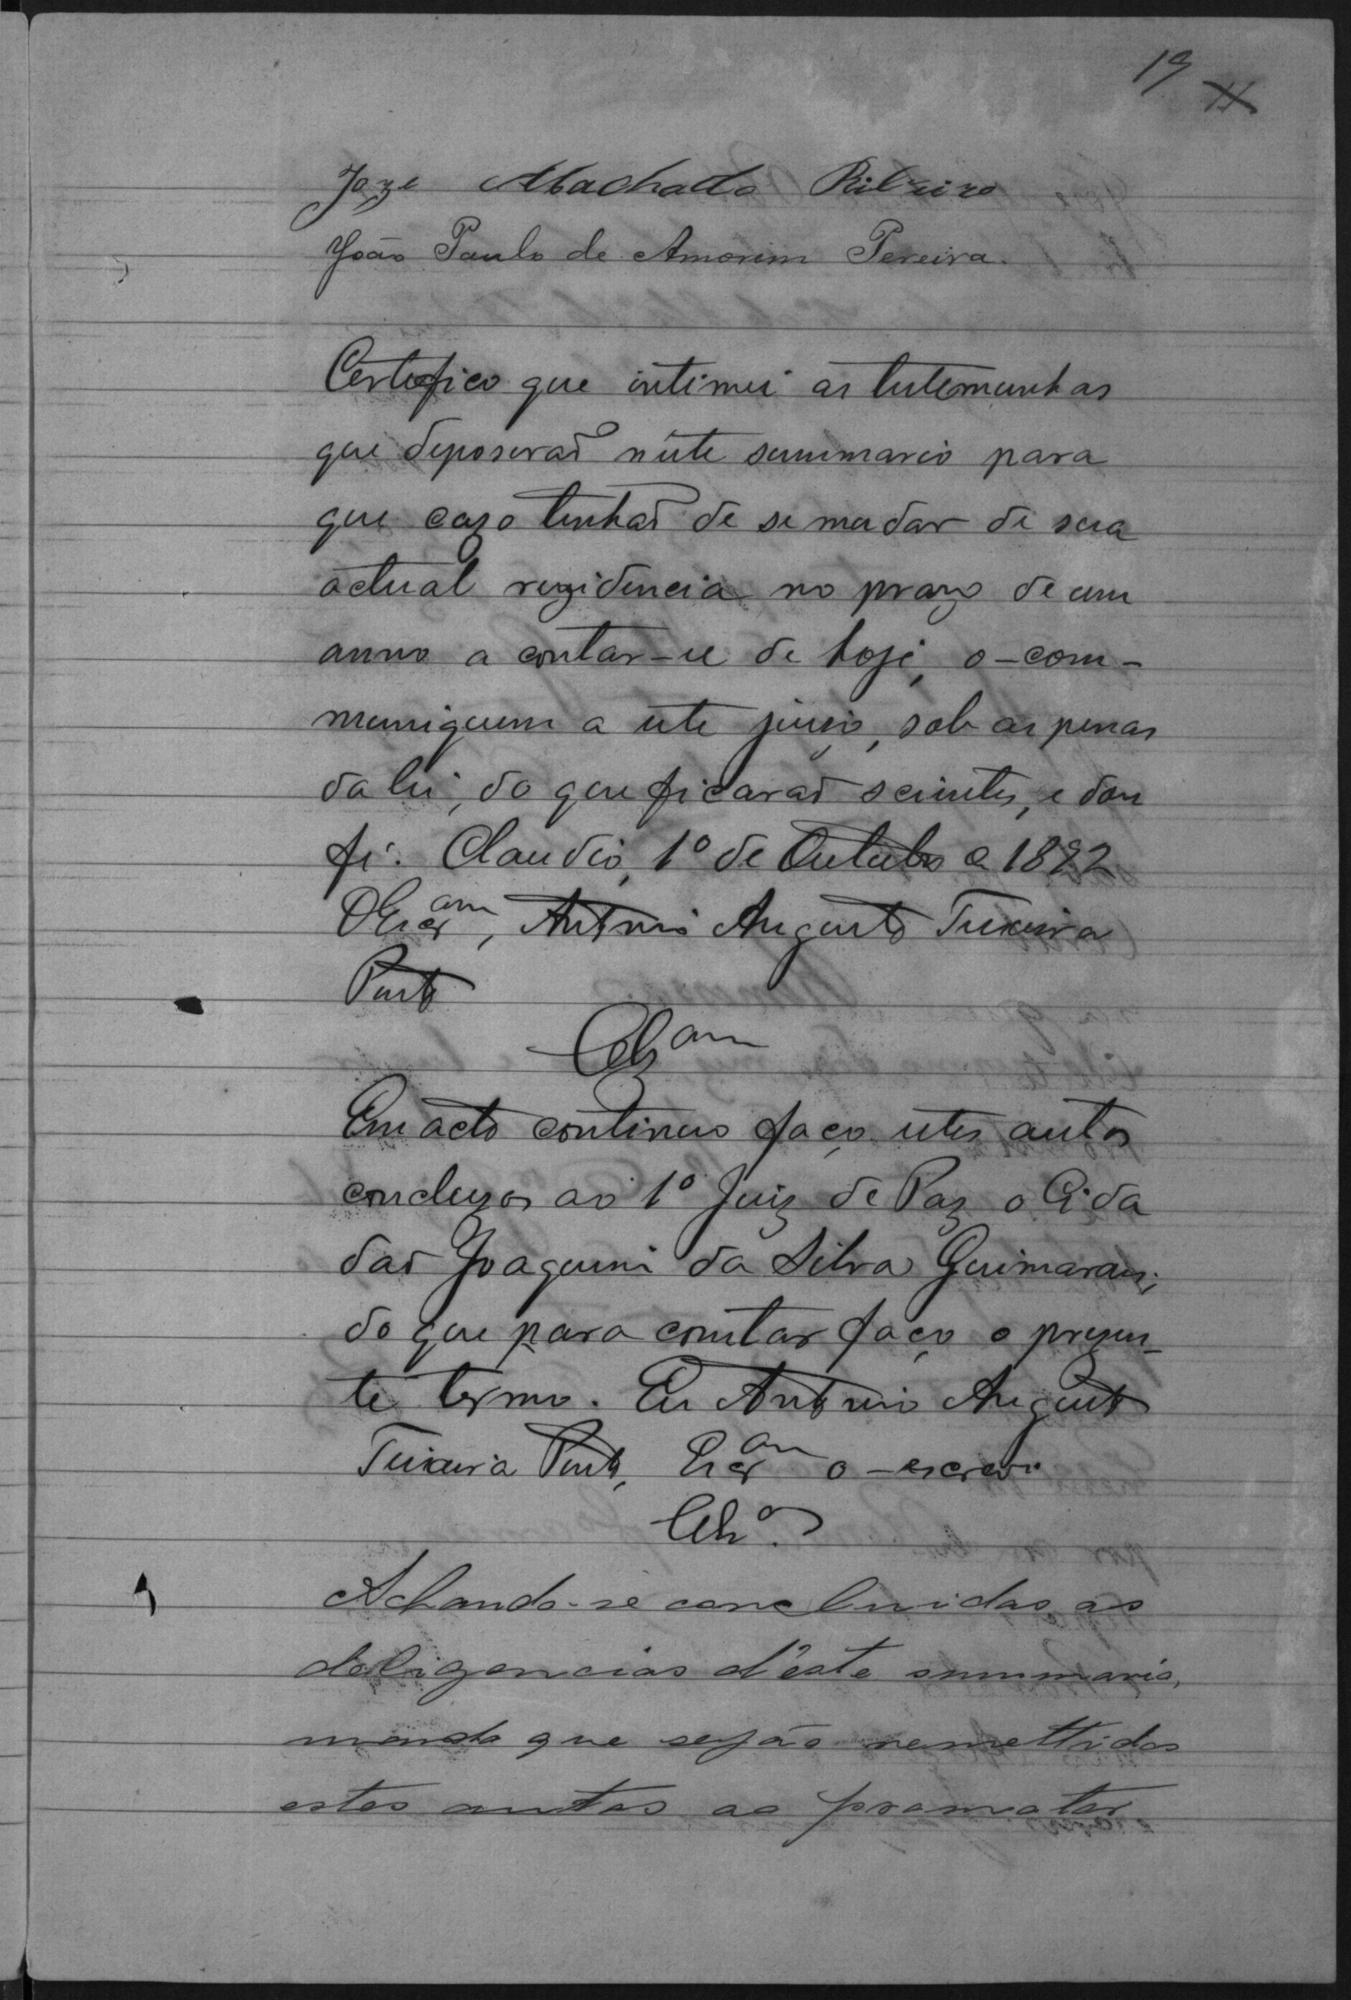 19
Joze Machado Ribeiro
João Paulo de Amorim Pereira.
Certefico que intimei as testemunhas
que deposerão n'este summario para
que cazo tenhão de se mudar de sua
actual rezidencia no prazo de um
anno a contar-se de hoje, o-com-
muniquem a este juizo, sob as penas
da lei, do que ficarão scientes, e dou
fé. Claudio, 1º de Outubro e 1892
O Escr am, Antonio Augusto Teixeira
Porto
Clz am
Em acto continuo faço estes autos
concluzos ao 1º Juiz de Paz o Cida
dão Joaquim da Silva Guimarães;
do que para constar faço o presen-
te termo. Eu Antonio Augusto
Teixeira Porto, Escr am o-escrevi.
Clz o.
Achando-se concluidas as
deligencias d'este summario,
mando que sejão remettidos
estes autos ao promotor